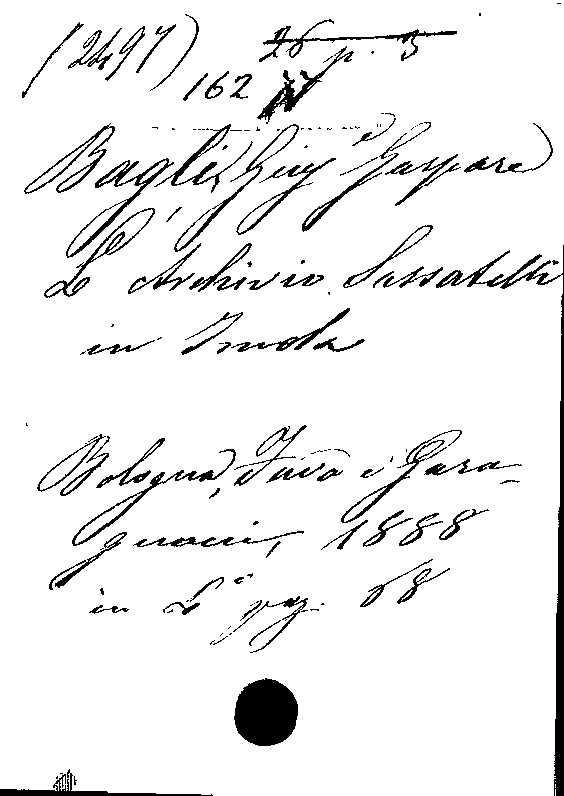 (2497) 26 p. 3
162
Bagli, Giuse Gaspare
L'Archivio Sassatelli
in Imola
Bologna, Fava e Gara-
gnani, 1888
in 4° pag. 68